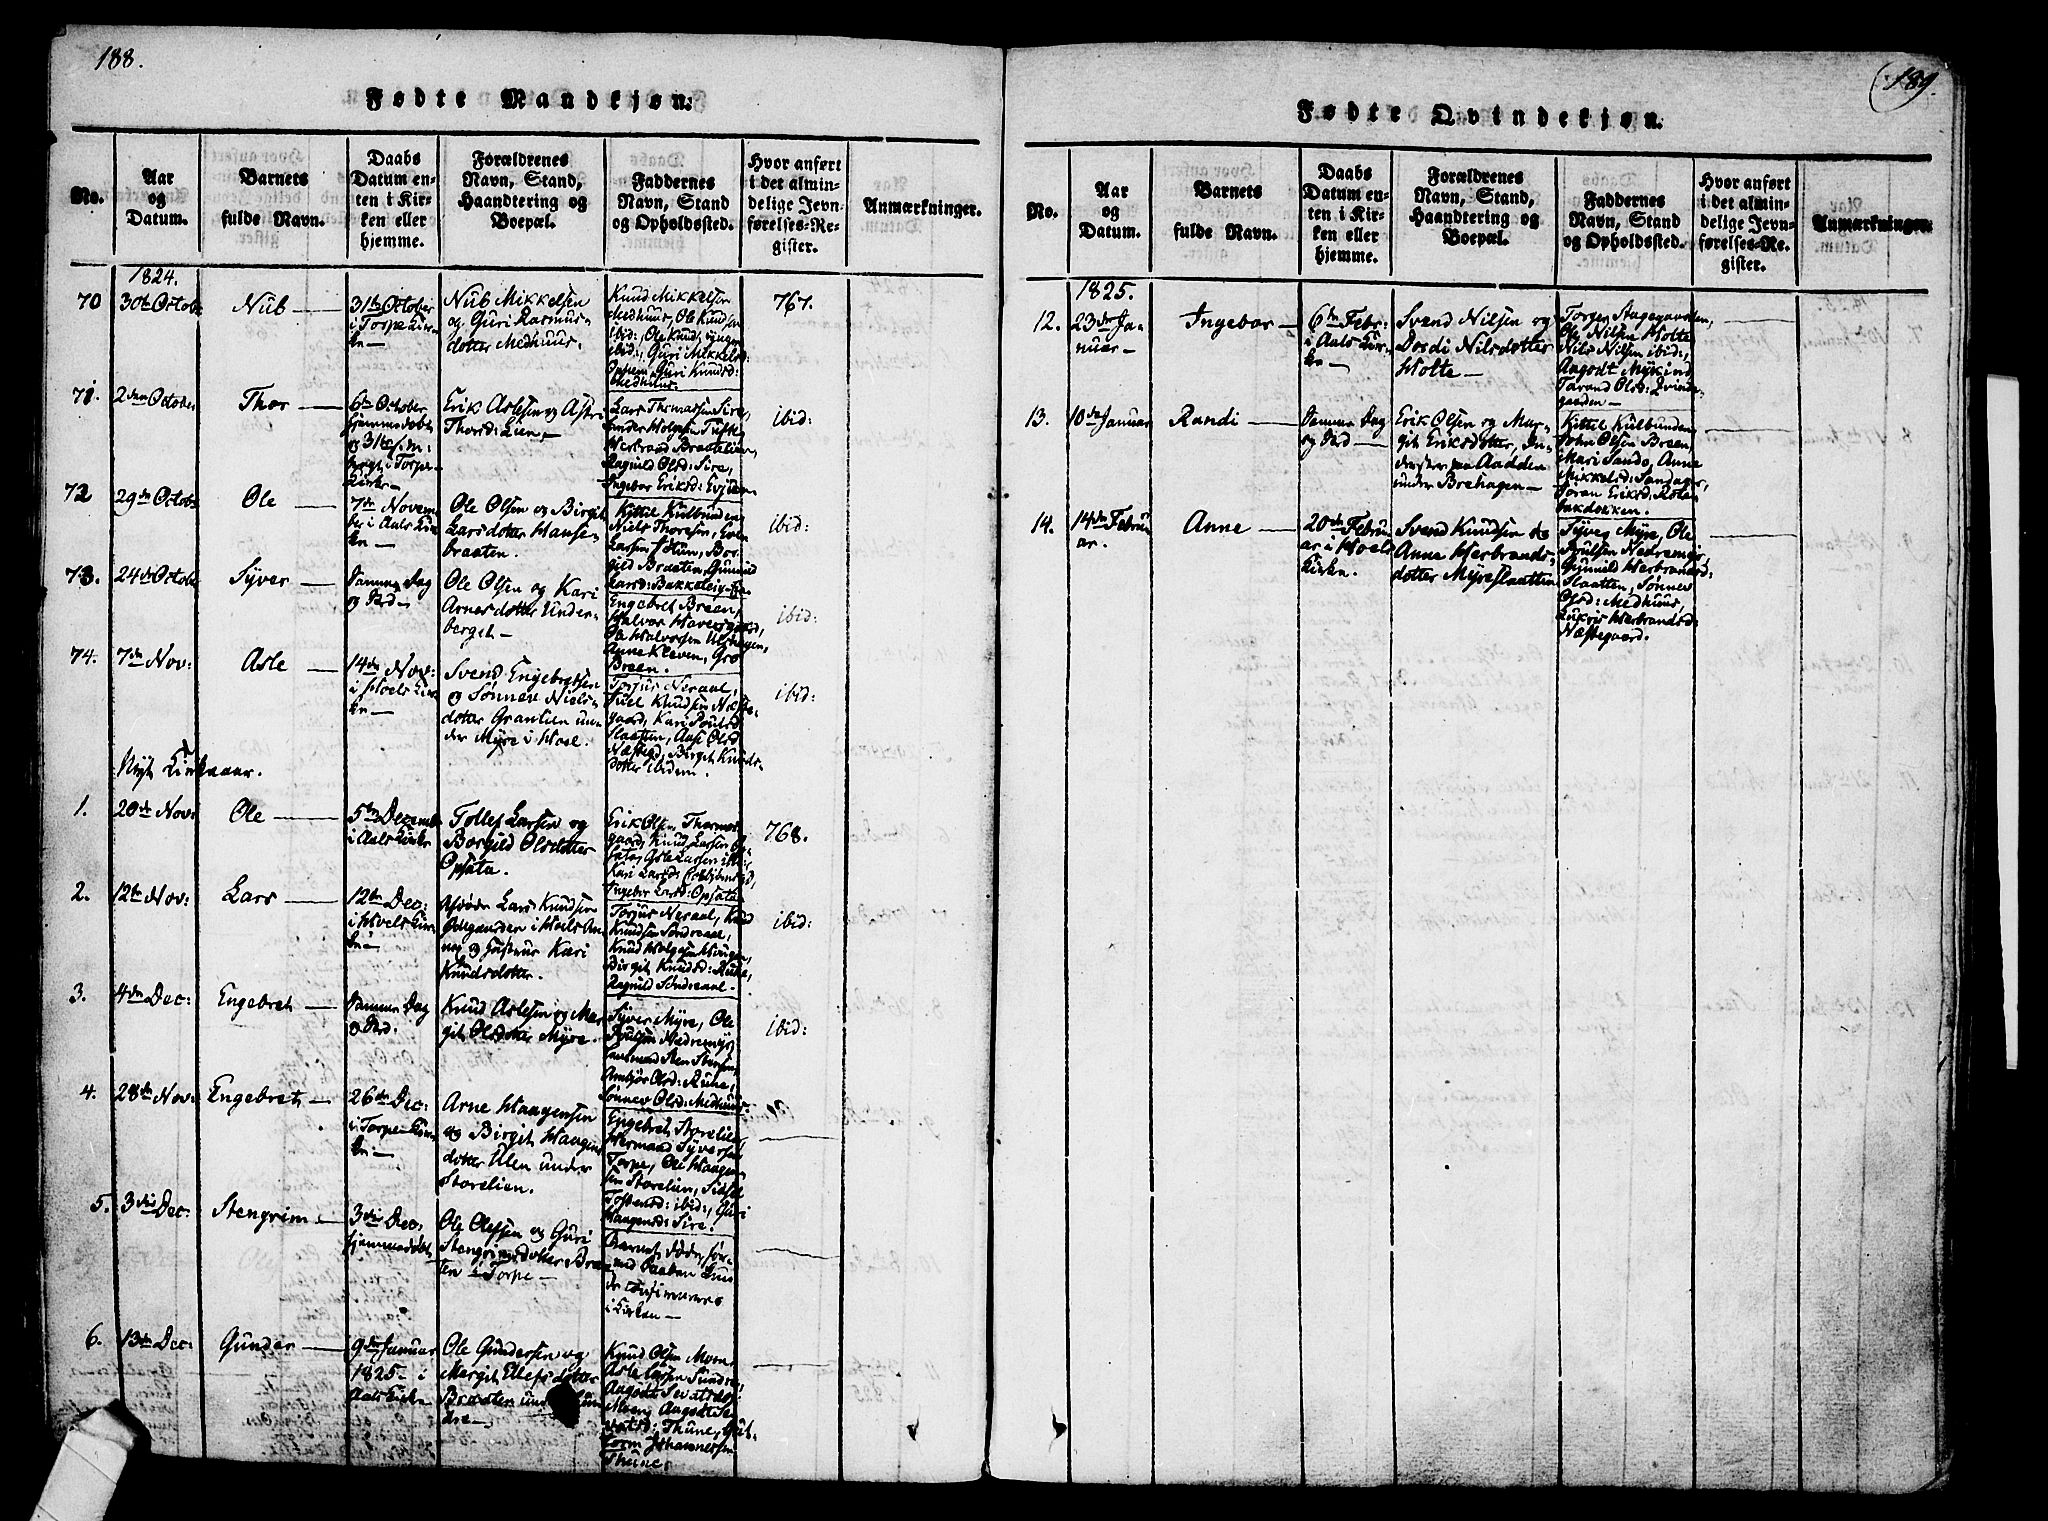 188.
Fødte Mandkjøn.
No.
Aar
og
Datum.
Barnets
fulde Navn.
Daabs
Datum en-
ten i Kir-
ken eller
hjemme.
Forældrenes
Navn, Stand,
Haandtering og
Boepæl.
Faddernes
Navn, Stand
og Opholdssted.
Hvor anført
i det almin-
delige Jevn-
førelses-Re-
gister.
Anmærkninger.
1824.
70
30te Octobr
Nub
31te October
i Torpe Kir-
ke
Nub Mikkelsen
og Guri Rasmus-
dotter Medhuus.
Knud Mikkelsen
Medhuus, Ole Knudsen
ibid:, Ole Knuds: yngre
ibid:, Guri Mikkelsd:
Guri Knudsd:
Medhuus.
767.
71.
2den October
Thor
6te October
hjemmedøbt
og 31te
i Torpe
Kirke
Erik Aslesen og Astri
Thorsd: Lien
Lars Thomassen Sire,
Herbrand Braatelien,
Ragnild Olsd: Sire,
Ingebor Eriksd:
ibid:
72
29de Octobr
Ole
7de Novem-
ber i Aals Kir-
ke
Ole Olsen og Birgit
Larsdotter Hanse-
braaten.
Kittil Kulbunden
Niels Thoresen, Even
Larsen
Braaten, Gunnild
Larsd:
ibid:
73.
24de Octobr
Syver
Samme Dag
og Sted
Ole Olsen og Kari
Arnesdotter Under-
berget
Engebret Breen,
Halvor
Ola Halvorsen
Anne Kleven, Gro
Breen.
ibid:
74.
7de Nov:
Asle
14de Nov:
i Hoels Kir-
ke
Svend Engebretsen
og Sønnev Niels-
dotter Grantien un-
der Myre i Hoel.
Torjus Neraal,
Knudsen Næste-
gaard, Kari Poulsd:
Slaatten, Aase Olsd:
Næstegd, Birgit Knuds-
dotter ibidem.
ibid:
Nyt Kirkeaar.
1.
20de Nov:
Ole
5te Decemb
i Aals Kirke
Tollef Larsen og
Borgild Olsdotter
Opsata.
Erik Olsen Thormods-
gaard, Knud Larsen Op-
sata, Asle Larsen
Kari Larsd:
Ingebor Larsd: Opsata
768.
2.
12te Nov:
Lars
12te Dec:
i Hoels Kir-
ke
Lars Knudsen
i Hoels An-
nex og Hustrue Kari
Knudsdotter.
Torjus Neraal, Knud
Knudsen Søndreaal,
Knud
Birgit Knudsd: Rue,
Ragnild Søndreaal.
ibid:
3.
4de Dec:
Engebret
Samme Dag
og Sted.
Knud Aslesen og Mar-
git Olsdotter Myre.
Syver Myre, Ole
Poulsen Nedremyr,
Ambjør Olsd: Rue,
Sønnev Olsd: Medhuus.
ibid:
4.
28de Nov:
Engebret
26de Dec:
i Torpe Kir-
ke
Arne Haagensen
og Birgit Haagens-
dotter Ulen under
Storelien.
Engebret Storelien,
Hermand Syversen
Torpe, Ole Haagen-
sen Storelien, Sidsel
Tostensd: ibid:, Guri
Haagensd: Sire.
5.
3die Dec:
Stengrim
3die Dec:
hjemmedøbt
Ole Olefsen og Guri
Stengrimsdotter Braa-
ten i Torpe
Barnet døde, før-
end Daaben kun-
de confirmeres
i Kirken
6.
13de Dec:
Gunder
9de Januar
1825 i
Aals Kirke
Ole Gundersen og
Margit Ellefsdotter
Braaten under Sun-
dre
Knud Olsen Moen,
Asle Larsen Sundre,
Aagodt Sevatsdot:
Moen, Aagodt Se-
vatsd: Thune, Gut-
torm Johannessen
Thune.
189.
Fødte Qvindekjøn.
No.
Aar
og
Datum.
Barnets
fulde Navn.
Daabs
Datum en-
ten i Kir-
ken eller
hjemme.
Forældrenes
Navn, Stand,
Haandtering og
Boepæl.
Faddernes
Navn, Stand
og Opholdssted.
Hvor anført
i det almin-
delige Jevn-
førelses-Re-
gister.
Anmærkninger.
1825.
12.
23de Ja-
nuar
Ingebor
6te Febr:
i Aals Kir-
ke
Svend Nilsen og
Dordi Nilsdotter
Holte
Torger Stagegaarden,
Ole Nilsen Holte
Nils Nilsen ibid:,
Aagodt Myking
Tarand Olsd: Qvinde-
gaarden
13.
10de Januar
Randi
Samme Dag
og Sted
Erik Olsen og Mar-
git Eriksdotter, In-
derster paa Aadden
under Brehagen
Kittil Kulbunden
John Olsen Breen,
Mari Sando, Anne
Mikkelsd: Sandager,
Joran Eriksd: Roten
bakdokken.
14.
14de Febru-
ar.
Anne
20de Febru-
ar i Hoels
Kirke.
Svend Knudsen og
Anne Herbrands-
dotter Myreslaatten
Syver Myre, Ole
Poulsen Nedremyr,
Gunnild Herbrandsd:
Slaatten, Sønnev
Olsd: Medhuus,
Herbrandsd:
Næstegaard.